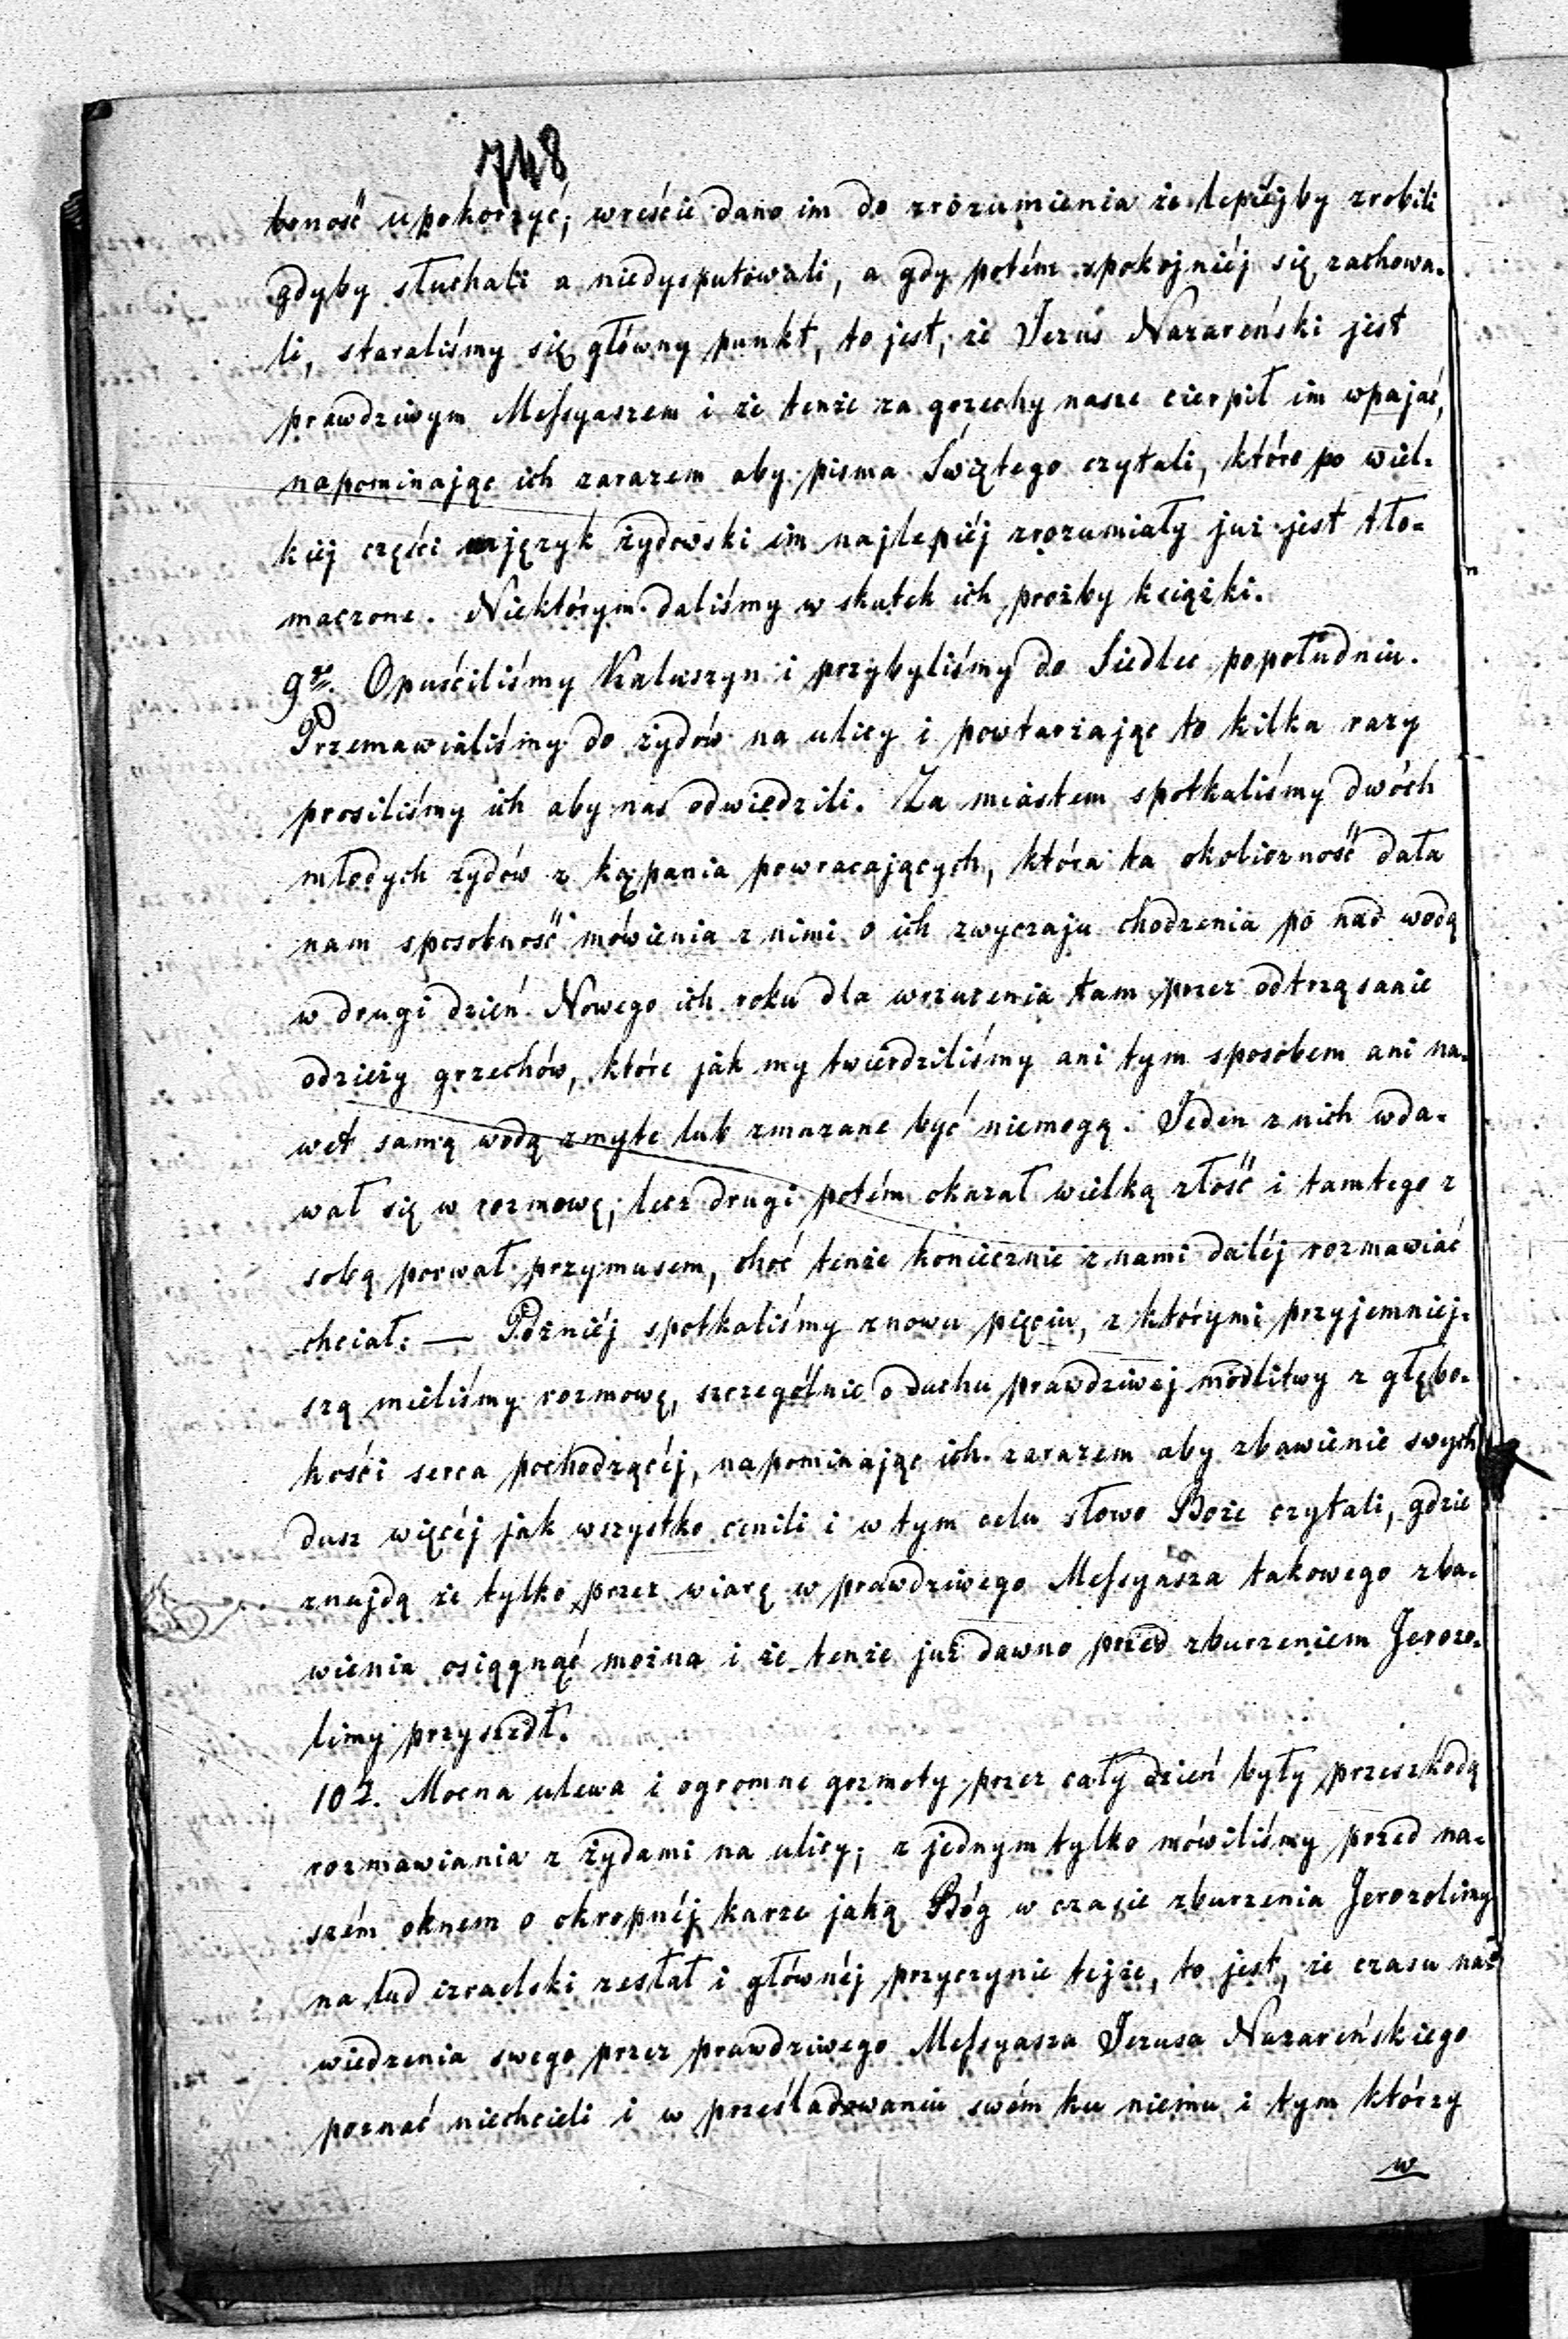 748
bność upokorzyć; wreście dano im do zrozumienia że lepiéjby zrobili
gdyby słuchali a niedysputowali, a gdy potém spokojniéj się zachowa-
li, staraliśmy się główny punkt, to jest, że Jezus Nazareński jest
prawdziwym Messyaszem i że tenże za grzechy nasze cierpił im wpajać,
napominając ich zarazem aby pisma Świętego czytali, które po wiel-
kiej części na język żydowski im najlepiéj zrozumiały już jest tło-
maczone. Niektórym daliśmy w skutek ich proźby książki.
9go. Opuściliśmy Kałuszyn i przybyliśmy do Siedlec popołudniu.
Przemawialiśmy do żydów na ulicy i powtarzając to kilka razy
prosiliśmy ich aby nas odwiedzili. Za miastem spotkaliśmy dwóch
młodych żydów z kąpania powracających, która ta okoliczność dała
nam sposobność mówienia z nimi o ich zwyczaju chodzenia po nad wodą
w drugi dzień Nowego ich roku dla wrzucenia tam przez odtrząsanie
odzieży grzechów, które jak my twierdziliśmy ani tym sposobem ani na-
wet samą wodą zmyte lub zmazane być niemogą. Jeden z nich wda-
wał się w rozmowę, lecz drugi potém okazał wielką złość i tamtego z
sobą porwał przymusem, choć tenże koniecznie z nami daléj rozmawiać
chciał. — Późniéj spotkaliśmy znowu pięciu, z którymi przyjemniej-
szą mieliśmy rozmowę, szczególnie o duchu prawdziwej modlitwy z głębo-
kości serca pochodzącéj, napominając ich zarazem aby zbawienie swych
dusz więcéj jak wszystko cenili i w tym celu słowo Boże czytali, gdzie
znajdą że tylko przez wiarę w prawdziwego Messyasza takowego zba-
wienia osiągnąć można i że tenże już dawno przed zburzeniem Jerozo-
limy przyszedł.
10go. Mocna ulewa i ogromne grzmoty przez cały dzień były przeszkodą
rozmawiania z żydami na ulicy; z jednym tylko mówiliśmy przed na-
szém oknem o okropnéj karze jaką Bóg w czasie zburzenia Jerozolimy
na lud izraelski zesłał i głównéj przyczynie tejże, to jest, że czasu na-
wiedzenia swego przez prawdziwego Messyasza Jezusa Nazareńskiego
poznać niechcieli i w prześladowaniu swém ku niemu i tym którzy
w